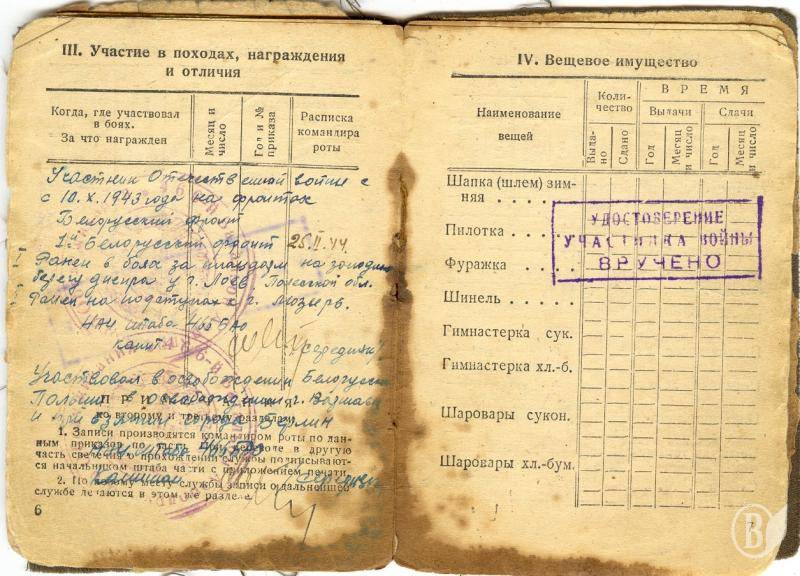 III. Участие в походах, награждения
и отличия
Когда, где участвовал
в боях.
За что награжден
Месяц и
число
Год и №
приказа
Расписка
командира
роты
Участник Отечественной войны с
с 10.X.1943 года на фронтах
Белорусский фронт
1й Белорусский фронт 25.II.44.
I Ранен в боях за плацдарм на западном
берегу днепра у г. Лоев Полесской обл.
II Ранен на подступах к г. мозырь.
Нач штаба 465
капит Середин
Участвовал в освобождении Белоруссии
Польши в освобождении г. Варшавы
и при взятии города Берлин
ПРИМЕЧАНИЯ
ко второму и третьему разделам
1. Записи производятся командиром роты по дан-
ным приказов по части. При переводе в другую
часть сведения о прохождении службы подписывают-
ся начальником штаба части с приложением печати.
2. По новому месту службы записи о дальнейшей
службе делаются в этом же разделе.
6
IV. Вещевое имущество
Наименование
вещей
Коли-
чество
ВРЕМЯ
Выдачи
Сдачи
Выда-
но
Сдано
Год
Месяц
и число
Год
Месяц
и число
Шапка (шлем) зим-
няя . . . . . . . .
Пилотка . . . . .
Фуражка . . . . .
Шинель . . . . .
Гимнастерка сук.
Гимнастерка хл.-б.
Шаровары сукон.
Шаровары хл.-бум.
УДОСТОВЕРЕНИЕ
УЧАСТНИКА ВОЙНЫ
ВРУЧЕНО
7
В